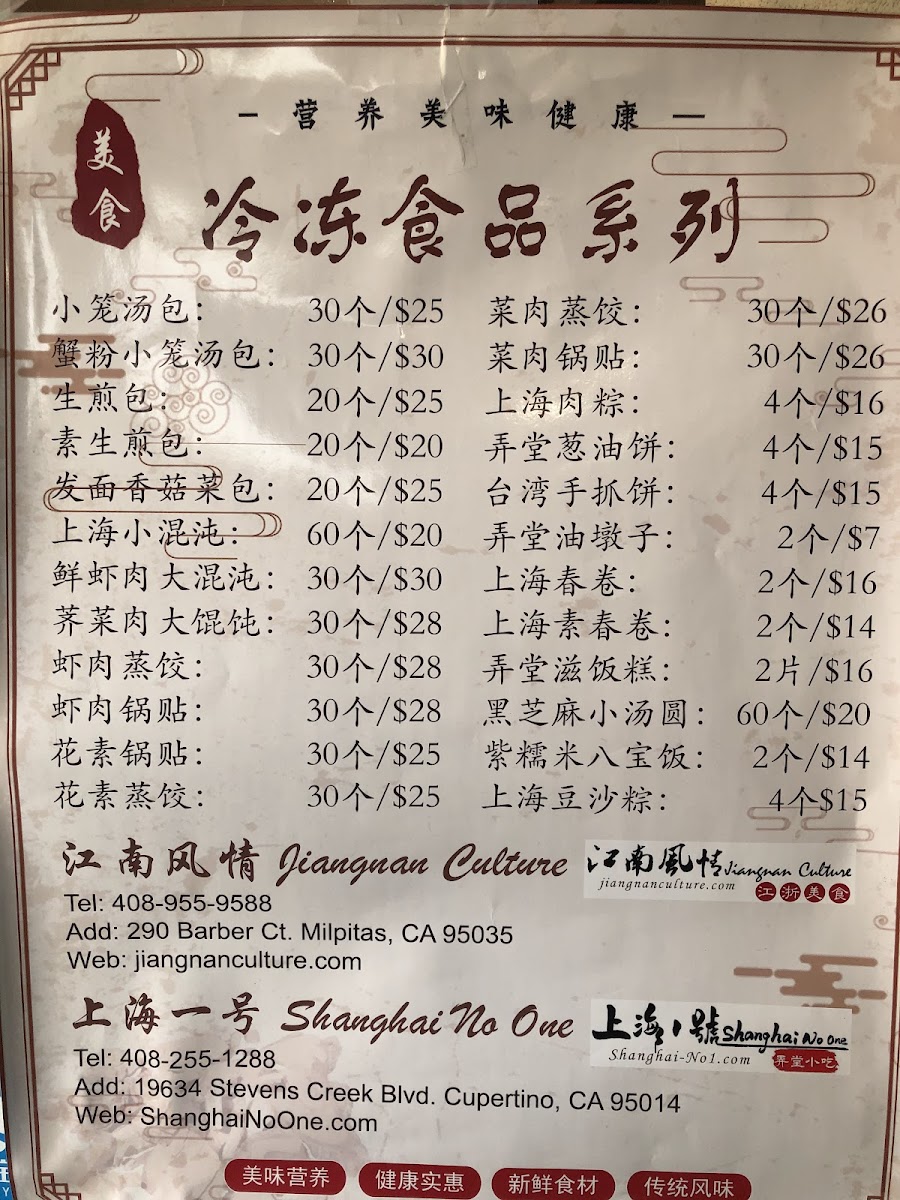 —营养美味健康—
美食
冷冻食品系列
小笼汤包: 30个/$25
蟹粉小笼汤包: 30个/$30
生煎包: 20个/$25
素生煎包: 20个/$20
发面香菇菜包: 20个/$25
上海小混沌: 60个/$20
鲜虾肉大混沌: 30个/$30
荠菜肉大馄饨: 30个/$28
虾肉蒸饺: 30个/$28
虾肉锅贴: 30个/$28
花素锅贴: 30个/$25
花素蒸饺: 30个/$25
菜肉蒸饺: 30个/$26
菜肉锅贴: 30个/$26
上海肉粽: 4个/$16
弄堂葱油饼: 4个/$15
台湾手抓饼: 4个/$15
弄堂油墩子: 2个/$7
上海春卷: 2个/$16
上海素春卷: 2个/$14
弄堂滋饭糕: 2片/$16
黑芝麻小汤圆: 60个/$20
紫糯米八宝饭: 2个/$14
上海豆沙粽: 4个$15
江南风情 Jiangnan Culture
江南風情 Jiangnan Culture
jiangnanculture.com
江浙美食
Tel: 408-955-9588
Add: 290 Barber Ct. Milpitas, CA 95035
Web: jiangnanculture.com
上海一号 Shanghai No One
上海1號 Shanghai No One
Shanghai-No1.com
弄堂小吃
Tel: 408-255-1288
Add: 19634 Stevens Creek Blvd. Cupertino, CA 95014
Web: ShanghaiNoOne.com
美味营养 健康实惠 新鲜食材 传统风味